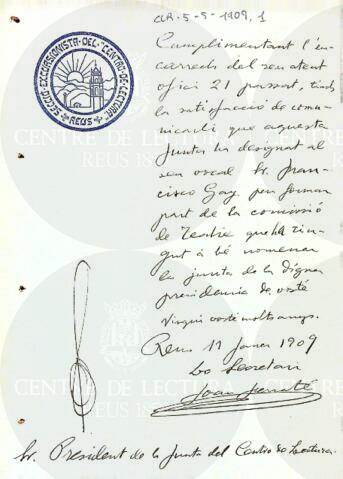 CLR-5-5-1909,1
SECCIÓ EXCURSIONISTA DEL "CENTRO DE LECTURA"
REUS
Cumplimentant l'en-
carrech del seu atent
ofici 21 passat, tinch
la satisfacció de comu-
nicarli que aquesta
Junta ha designat al
seu vocal Sr. Fran-
cisco Gay per formar
part de la comissió
de Teatre que ha tin-
gut á bé nomenar
la junta de la digna
presidencia de vosté
Visqui vosté molts anys.
Reus 11 Janer 1909
Lo Secretari
Joan
Sr. President de la Junta del Centro de Lectura.
CENTRE DE LECTURA
REUS
CENTRE DE LECTURA